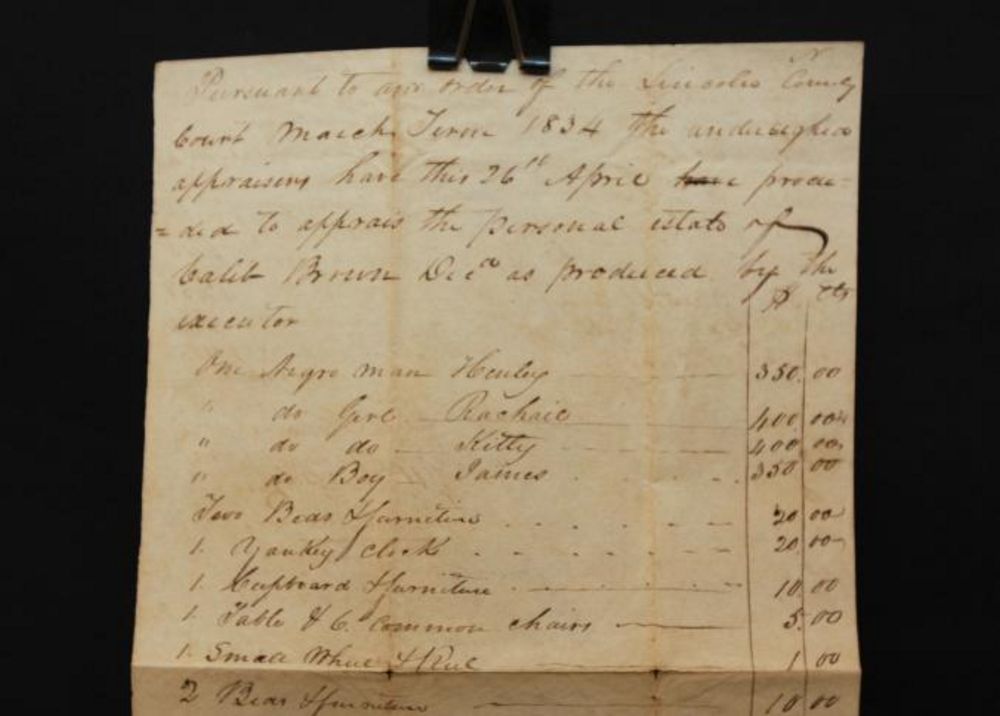 Pursuant to an order of the Lincoln County
Court March Term 1834 the undersigned
appraisers have this 26th April have procee-
=ded to apprais the personal estate of
Calib Brown Decd as produced by the
executor
$ cts
One Negro man Henley 350.00
" do Girl Rachail 400 00
" do do Kitty 400 00
" do Boy James 350 00
Two Beds & furniture 20 00
1. Yankey clock 20 00
1. Cupboard & furniture 10.00
1. Table & 6. common chairs 5.00
1. Small Wheel & Reel 1 00
2 Beds & furniture 10.00